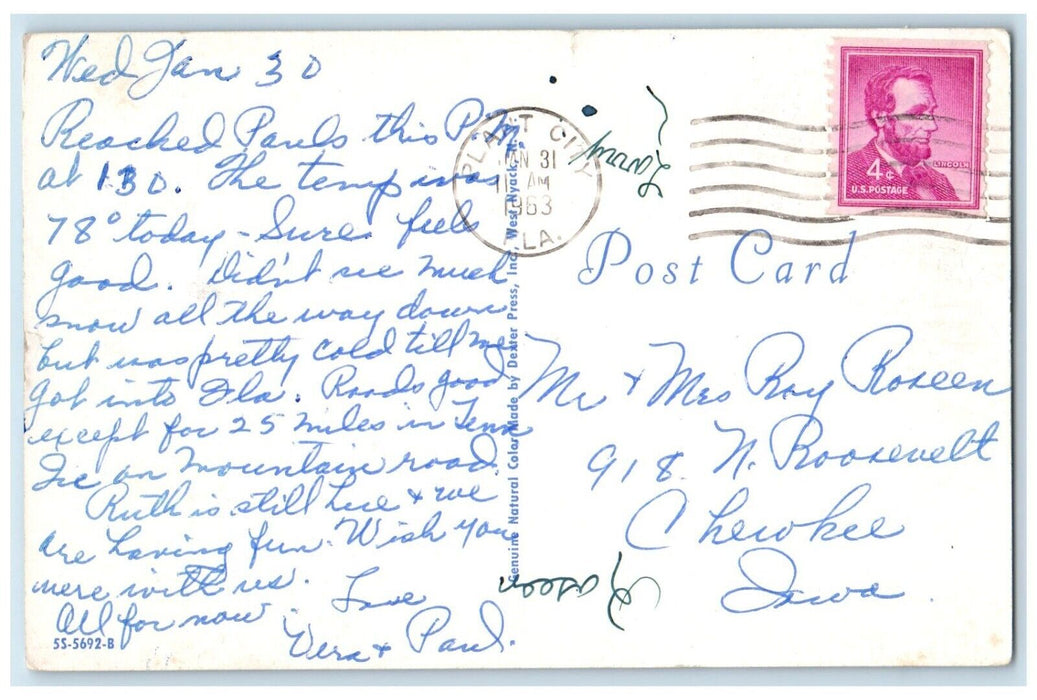 Wed Jan 30
Reached Pauls this P.M.
at 130. The temp was
78° today - Sure feels
good. Didn't see much
snow all the way down
but was pretty cold till we
got into Fla. Roads good
except for 25 miles in Tenn
Ice on Mountain road.
Ruth is still here + we
are having fun. Wish you
were with us.
All for now.
Love
Vera + Paul.
5S-5692-B
Genuine Natural Color Made by Dexter Press, Inc., West Nyack, N.Y.
PLANT CITY
JAN 31
11 AM
1963
FLA.
4¢
LINCOLN
U.S. POSTAGE
Post Card
Mr + Mrs Roy Roseen
918 N. Roosevelt
Cherokee
Iowa.